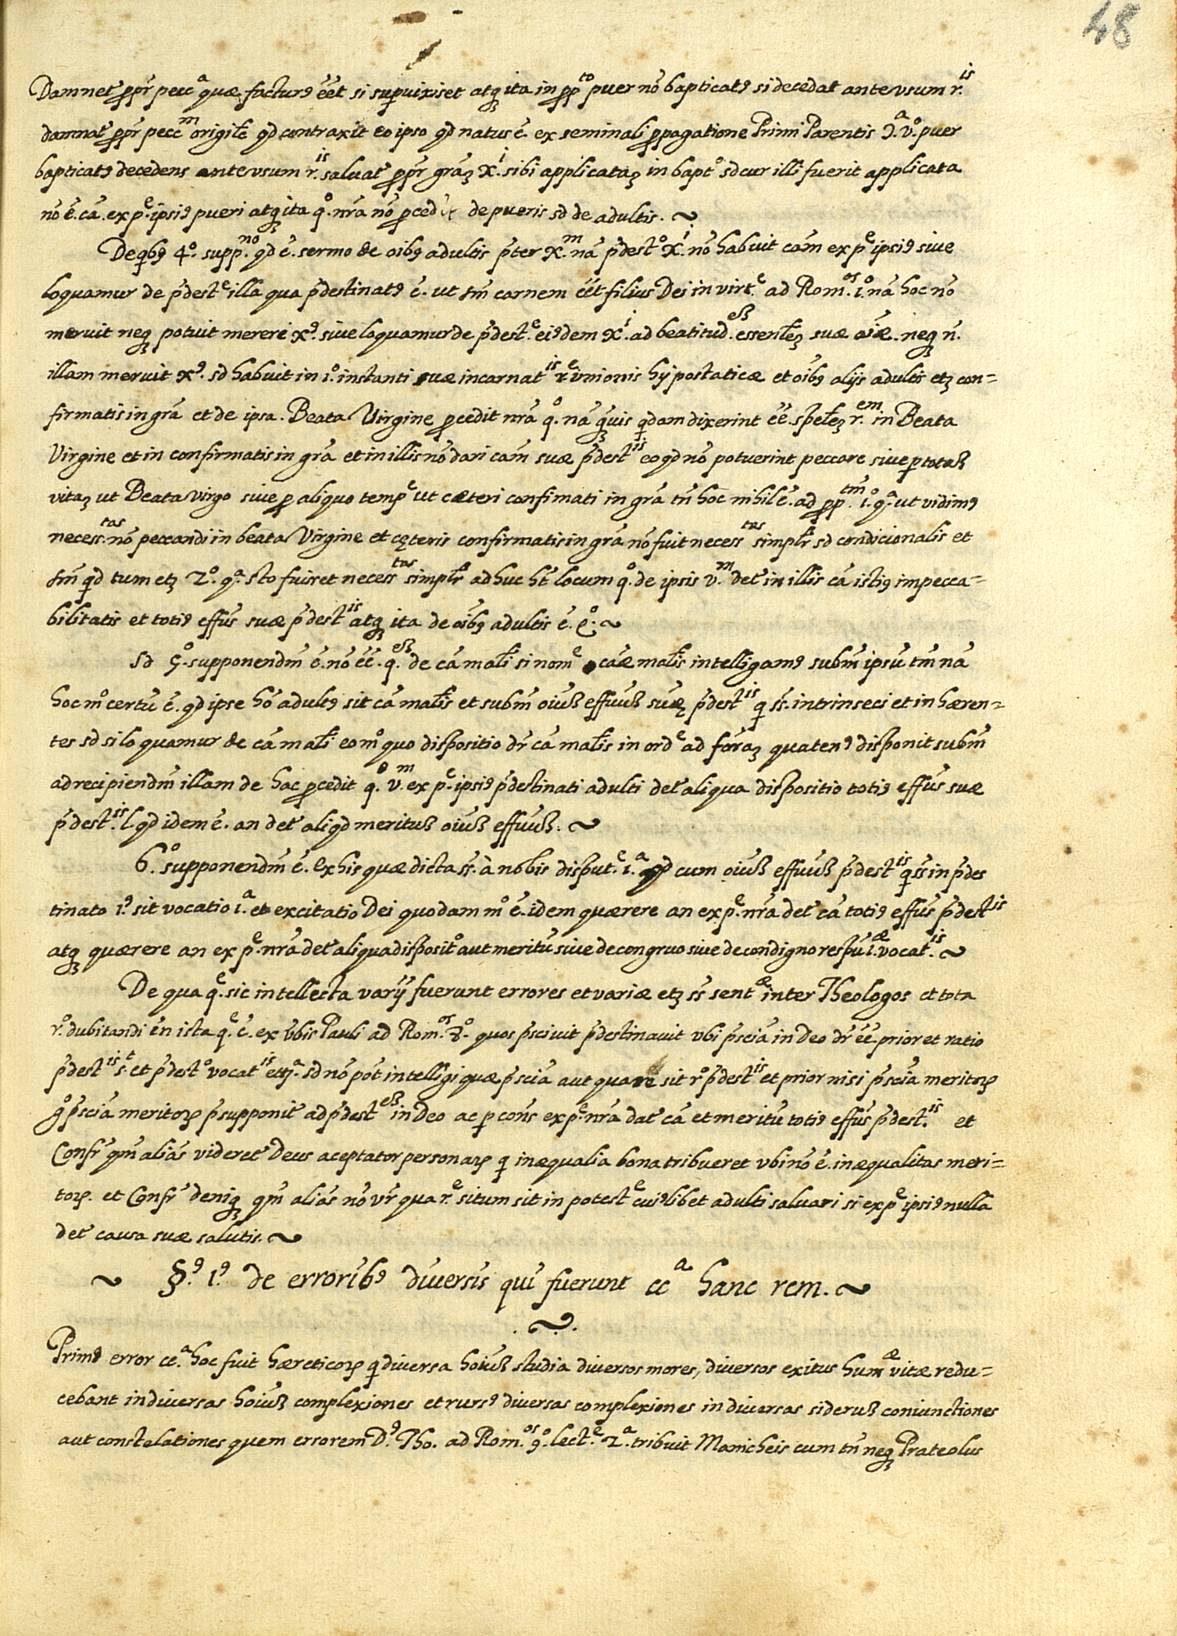 48
Damnet˜ ꝓpr̃ pecc.ᵃ quæ facturꝰ éet si supuixiset atqꝫ ita in ꝓp.ᵗᵒ puer nõ baptizatꝰ si decedat ante usum r.ⁱˢ
damnat˜ ꝓpr̃ pecc.ᵐ origile˜ qd contraxit eo ipso qd natus é. ex seminali ꝓpagatione Primi Parentis puer
baptizatꝰ decedens ante usum r.ⁱˢ saluat˜ ꝓpr̃ grãꝫ X.ⁱ sibi applicataꝫ in bapt.º sd cur illi fuerit applicata
nõ é. cã. ex p.ᵉ ipsiꝰ pueri atqꝫ ita q.º nr̃a nõ ꝓcedit de pueris sd de adultis. ~
De qbꝰ 4.º supp.ⁿᵒ qd é. sermo de oibꝰ adultis p̃ter X.ᵐ nã p̃dest.º X.ⁱ nõ habuit cãm ex p.ᵉ ipsiꝰ siue
loquamur de p̃dest.ᵉ illa qua p̃destinatꝰ é. ut sm̃ carnem éet filius Dei in uirt.ᵉ ad Rom.ᵒˢ 1.º nã hoc nõ
meruit neqꝫ potuit mereri Xꝰ. siue loquamur de p̃dest.ᵉ eiꝰdem X.ⁱ ad beatitud. essenlẽꝫ suæ aı̃æ. neqꝫ n̄.
illam meruit Xꝰ. sd habuit in 1.º instanti suæ incarnat.ⁱˢ et unionis hypostaticæ et oı̃bꝰ alijs adultis etꝫ con=
firmatis in grã et de ipsa. Beata Uirgine ꝓcedit nr̃a q.º nã quis qdam dixerint ée. spẽleꝫ r.ᵉᵐ in Beata
Virgine et in confirmatis in grã et in illis nõ dari cãm suæ p̃dest.ⁱˢ eo qd nõ potuerint peccare siue p totaꝫ
vitaꝫ ut Beata virgo siue ꝓ aliquo temp.ᵉ ut cæteri confirmati in grã tñ hoc nihil é. ad ꝓp.ᵗᵐ 1.º q.ᵃ ut vidimꝰ
necess.ᵗᵃˢ nõ peccandi in beata Virgine et cęteris confirmatis in grã nõ fuit necess.ᵗᵃˢ simplr̃ sd condicionalis et
sm̃ qd tum etꝫ 2.º q.ᵃ sto fuiret necess.ᵗᵃˢ simplr̃ ad huc ht̃ locum q.º de ipsis v.ᵐ det˜ in illis cã istiꝰ impecca=
bilitatis et totiꝰ effũs suæ p̃dest.ⁱˢ atqꝫ ita de oı̃bꝰ adultis é. q.º ~
Sd 5.º supponendm̃ é. nõ ée. q. de cã malı̃ si nom.ᵉ cãæ malı̃s intelligamꝰ subm̃ ipsũ tm̃ nã
hoc m.º certũ é. qd ipse hõ adultꝰ sit cã malı̃s et subm̃ oiuꝫ effuuꝫ suæ p̃dest.ⁱˢ qi st. intrinseci et in hæren=
tes sd si loquamur de cã malı̃ eo m.º quo dispositio dr̃ cã malı̃s in ord.ᵉ ad formaꝫ quatenꝰ disponit subm̃
ad recipiendm̃ illam de hac ꝓcedit q.º v.ᵐ ex p.ᵉ ipsiꝰ p̃destinati adulti det˜ aliqua dispositio totiꝰ effũs suæ
p̃dest.ⁱˢ l. qd idem é. an det˜ aliqd meritũ oiuꝫ effuuꝫ. ~
6.º supponendm̃ é. Ex his quæ dicta st. à nobis disput.ᵉ 1.ᵃ qd cum oiuꝫ effuuꝫ p̃dest.ⁱˢ qi st in p̃des
tinato 1.º sit vocatio 1.ᵃ et excitatio Dei quodam m.º é. idem quærere an ex p.ᵉ nr̃a det˜ cã totiꝰ effũs p̃dest.ⁱˢ
atqꝫ quærere an ex p.ᵉ nr̃a det˜ aliqua disposit.º aut meritũ siue de congruo siue de condigno respũ 1.ᵃᵉ vocat.ⁱˢ ~
De qua q.ᵉ sic intellecta varij fuerunt errores et variæ etꝫ st sent.ᵃᵉ inter Theologos et tota
r.º dubitandi in ista q.ᵉ é. ex v̄bis Pauli ad Rom.ᵒˢ 8.º quos p̃sciuit p̃destinauit vbi p̃sciã in Deo dr̃ ée. prior et ratio
p̃dest.ⁱˢ et p̃dest.º vocat.ⁱˢ sd nõ pot̃ intelligi quæ p̃sciã aut quare sit r.º p̃dest.ⁱˢ et prior nisi p̃sciã meritoꝝ
g.º p̃sciã meritoꝝ p̃supponit˜ ad p̃dest. in Deo ac p cons̃ ex p.ᵉ nr̃a dat˜ cã et meritũ totiꝰ effũs p̃dest.ⁱˢ et
Confr̃ qm̃ aliás videret˜ Deus aceptator personaꝝ qi inæqualia bona tribueret vbi nõ é. inæqualitas meri=
toꝝ. et Confr̃ deniqꝫ qm̃ aliás nõ vr̃ qua r.ᵉ situm sit in potest.ᵉ cuiꝰlibet adulti saluari si ex p.ᵉ ipsiꝰ nulla
det˜ causa suæ salutis. ~
~ §.ꝰ 1.ꝰ de erroribꝰ diuersis qui fuerunt cc.ᵃ hanc rem. ~
~
Primꝰ error cc.ᵃ hoc fuit hæreticoꝝ qi diuersa hoı̃uꝫ studia diuersos mores, diuersos exitus hum.ᵃᵉ vitæ redu=
cebant in diuersas hoı̃uꝫ complexiones et rursꝰ diuersas complexiones in diuersas sideruꝫ coniunctiones
aut constelationes quem errorem D.ꝰ Tho. ad Rom.ᵒˢ 9.º lect.ᵉ 2.ᵃ tribuit Manicheis cum tñ neqꝫ Prateolus